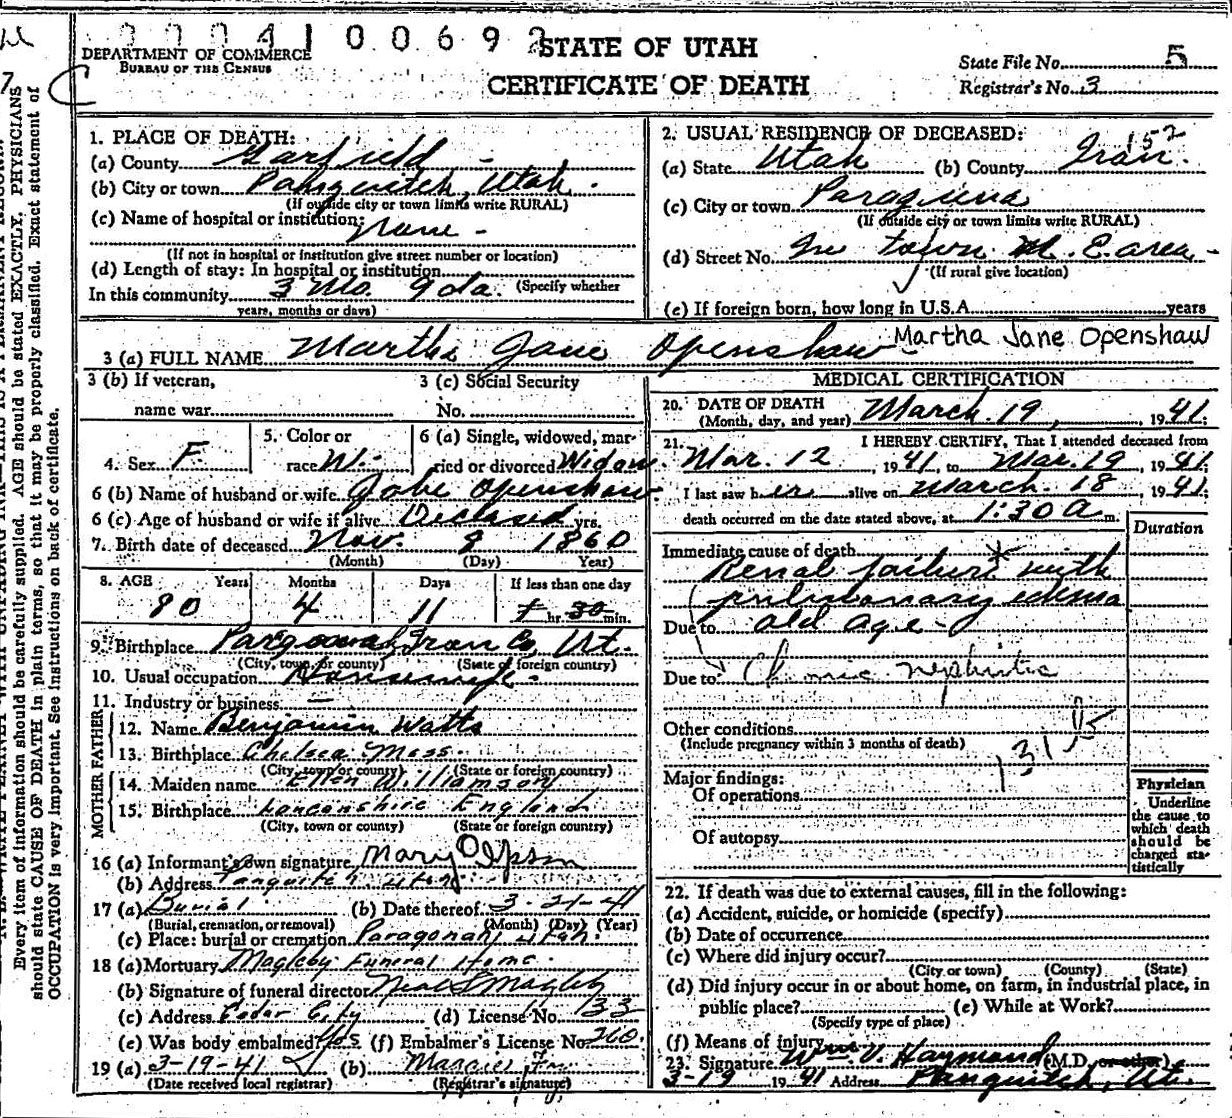 000410069
DEPARTMENT OF COMMERCE
BUREAU OF THE CENSUS
STATE OF UTAH
CERTIFICATE OF DEATH
State File No. 5
Registrar's No. 3
Every item of information should be carefully supplied. AGE should be stated EXACTLY. PHYSICIANS
should state CAUSE OF DEATH in plain terms, so that it may be properly classified. Exact statement of
OCCUPATION is very important. See instructions on back of certificate.
1. PLACE OF DEATH:
(a) County Garfield -
(b) City or town Panguitch, Utah.
(If outside city or town limits write RURAL)
(c) Name of hospital or institution:
None -
(If not in hospital or institution give street number or location)
(d) Length of stay: In hospital or institution
(Specify whether
In this community 3 Mo. 9 da.
years, months or days)
2. USUAL RESIDENCE OF DECEASED:
152
(a) State Utah (b) County Iron.
(c) City or town
(If outside city or town limits write RURAL)
(d) Street No. In town
(If rural give location)
(e) If foreign born, how long in U.S.A. years
3 (a) FULL NAME Martha Jane Openshaw Martha Jane Openshaw
3 (b) If veteran,
name war
3 (c) Social Security
No.
4. Sex F.
5. Color or
race W.
6 (a) Single, widowed, mar-
ried or divorced Widow.
6 (b) Name of husband or wife Jobe Openshaw
6 (c) Age of husband or wife if alive Deceased yrs.
7. Birth date of deceased Nov. 8 1860
(Month) (Day) Year)
8. AGE Years Months Days If less than one day
80 4 11 hr. 30 min.
9. Birthplace Iron Co, Ut.
(City, town or county) (State of foreign country)
10. Usual occupation Housewife -
11. Industry or business —
FATHER
12. Name Benjamin Watts
13. Birthplace Chelsea Mass.
(City, town or county) (State or foreign country)
MOTHER
14. Maiden name Ellen Williamson
15. Birthplace Lancanshire England
(City, town or county) (State or foreign country)
16 (a) Informant's own signature Mary
(b) Address Panguitch Utah
17 (a) Burial (b) Date thereof 3-21-41
(Burial, cremation, or removal) (Month) (Day) (Year)
(c) Place: burial or cremation Paragonah, Utah.
18 (a) Mortuary Magleby Funeral Home.
(b) Signature of funeral director Neal S Magleby
(c) Address Cedar City (d) License No. 133
(e) Was body embalmed? Yes (f) Embalmer's License No. 260
19 (a) 3-19-41 (b)
(Date received local registrar) (Registrar's signature)
MEDICAL CERTIFICATION
20. DATE OF DEATH
(Month, day, and year) March 19, 1941.
21. I HEREBY CERTIFY, That I attended deceased from
Mar. 12, 1941, to Mar. 19, 1941.
I last saw her alive on March 18, 1941.
death occurred on the date stated above, at 1:30 A m.
Duration
Immediate cause of death
Renal failure with
pulmonary edema
Due to old age -
Due to Chronic nephritis
Other conditions
(Include pregnancy within 3 months of death)
131
Major findings:
Of operations
Of autopsy
Physician
Underline
the cause to
which death
should be
charged sta-
tistically
22. If death was due to external causes, fill in the following:
(a) Accident, suicide, or homicide (specify)
(b) Date of occurrence
(c) Where did injury occur?
(City or town) (County) (State)
(d) Did injury occur in or about home, on farm, in industrial place, in
public place? (e) While at Work?
(Specify type of place)
(f) Means of injury
23. Signature Wm V. Haymond (M.D. or other)
3-19 1941 Address Panguitch, Ut.